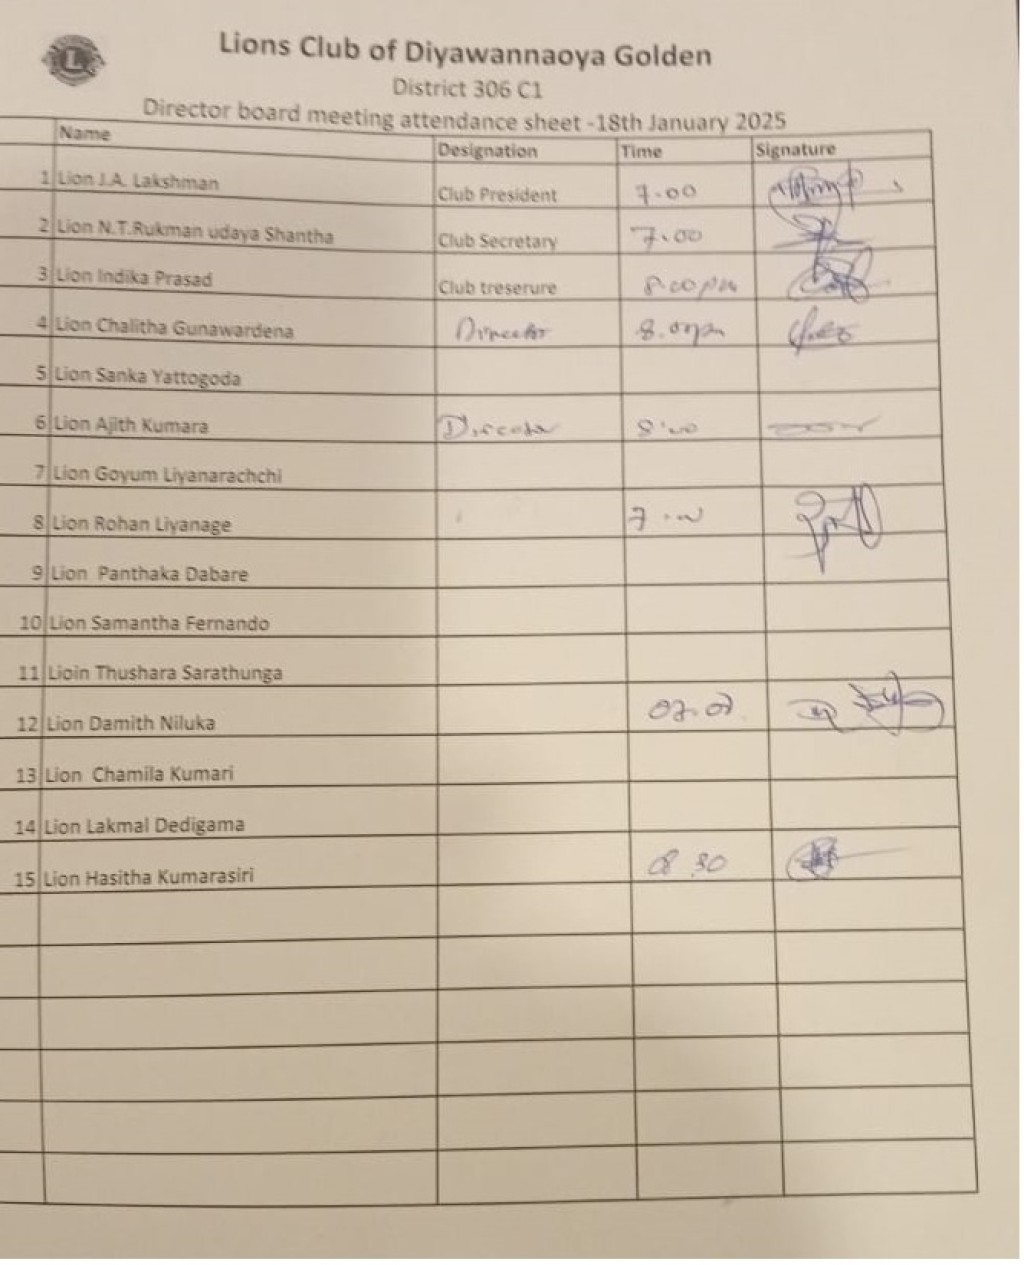 Lions Club of Diyawannaoya Golden
District 306 C1
Director board meeting attendance sheet -18th January 2025
Name Designation Time Signature
1 Lion J.A. Lakshman Club President 7.00
2 Lion N.T.Rukman udaya Shantha Club Secretary 7.00
3 Lion Indika Prasad Club treserure 8.00pm
4 Lion Chalitha Gunawardena Director 8.00pm
5 Lion Sanka Yattogoda
6 Lion Ajith Kumara Director 8.00
7 Lion Goyum Liyanarachchi
8 Lion Rohan Liyanage 7.00
9 Lion Panthaka Dabare
10 Lion Samantha Fernando
11 Lioin Thushara Sarathunga
12 Lion Damith Niluka
13 Lion Chamila Kumari
14 Lion Lakmal Dedigama
15 Lion Hasitha Kumarasiri 08.30